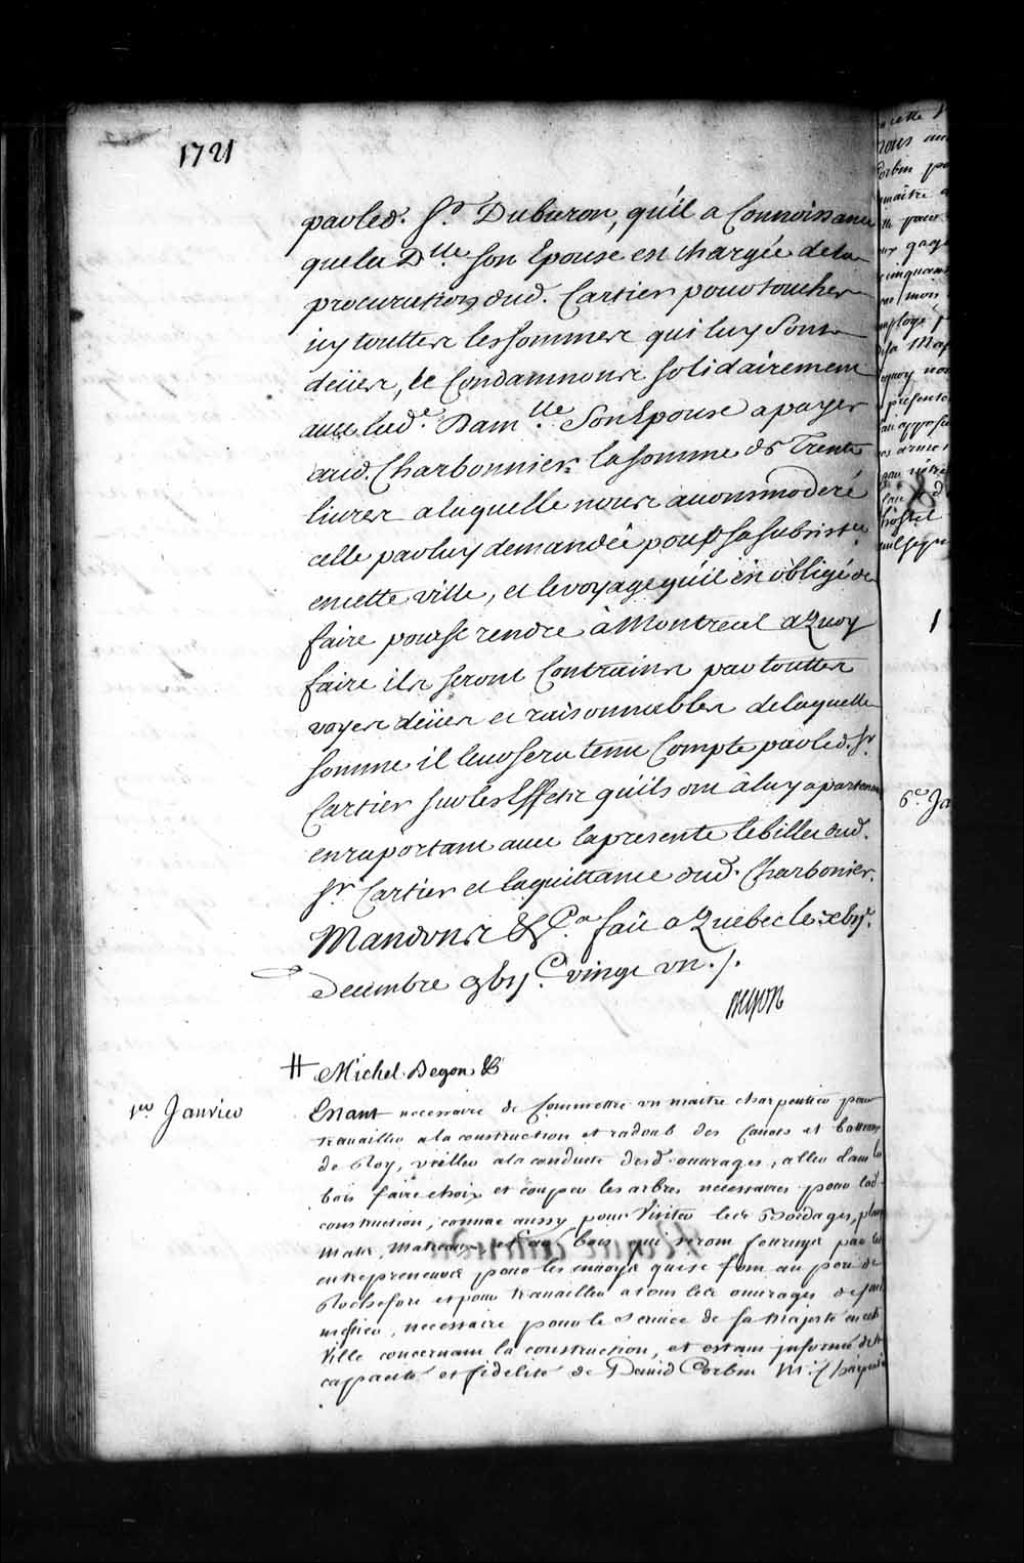 1721
par led. Sr. Duburon, qu'il a Connoissance
que la Dlle son Epouse est chargée de la
procuration dud. Cartier pour toucher
icy touttes les sommes qui luy sont
deües, le Condamnons solidairement
avec lad.e Damlle. Son Epouse a payer
aud. Charbonnier la somme de Trente
livres a laquelle nous avons moderé
celle par luy demandée pour sa subsistce
en cette ville, et le voyage qu'il est obligé de
faire pour se rendre à Montreal a Quoy
faire ils seront Contrains par touttes
voyes deües et raisonnables de laquelle
somme il leur sera tenu Compte par led. Sr.
Cartier sur les Effets qu'ils ont à luy apartenant
en raportant avec la presente le billet dud.
Sr. Cartier et la quittance dud. Charbonier.
Mandons &c.a fait a Quebec le
Decembre vingt un ./.
Begon
# Michel Begon &
1er Janvier
Estant necessaire de Commettre un maitre charpentier pour
travailler a la construction et radoub des Canots et batteaux
du Roy, veiller a la conduite desd. ouvrages, aller dans les
bois faire choix et couper les arbres necessaires pour lad.
construction, comme aussy pour Visiter les Bordages, plan
Mats, Matreaux et bois qui seront fournys par les
entrepreneurs pour les envoys qui se font au port de
Rochefort et pour travailler a tous les ouvrages de son
mestier, necessaire pour le service de sa Majesté en cette
Ville concernant la construction, et estant informé de la
capacité et fidelité de David Corbin Me. Charpentier
6e Ja